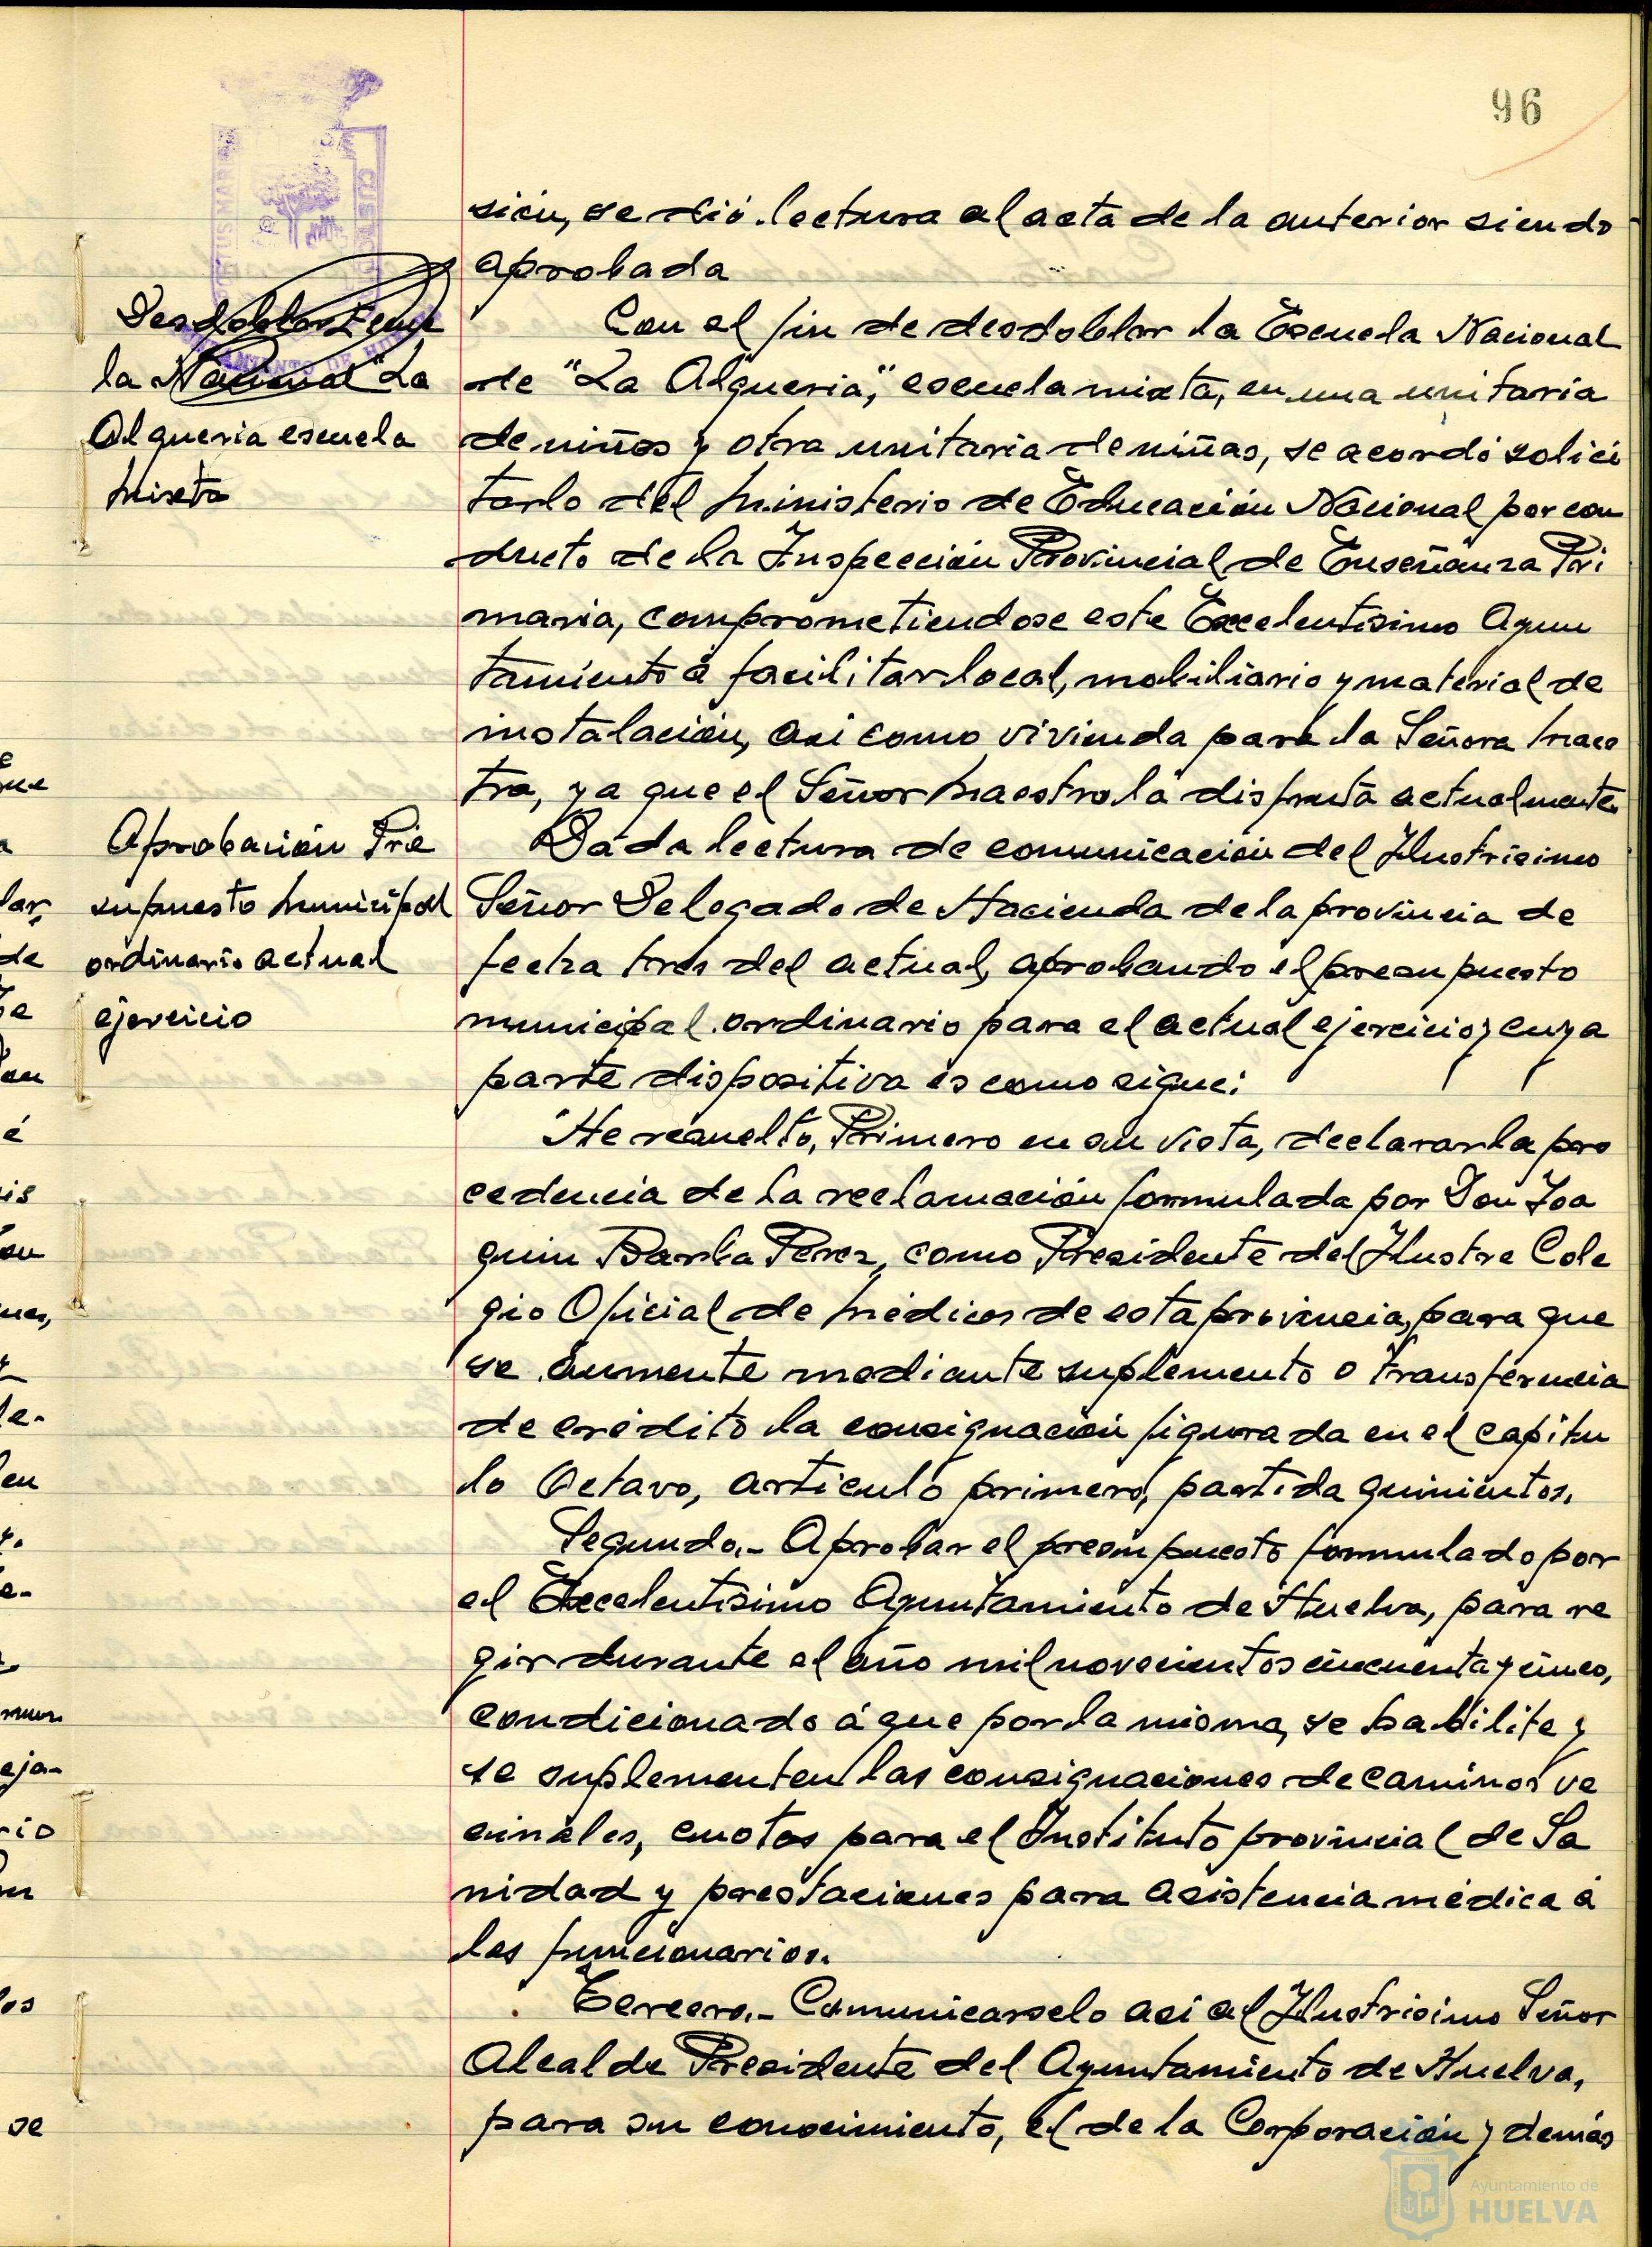 96
sión, se dió lectura al acta de la anterior siendo
aprobada
Desdoblar Escue
la Nacional "La
Alqueria escuela
Mixta
Con el fin de desdoblar la Escuela Nacional
de "La Alqueria", escuela mixta, en una unitaria
de niños y otra unitaria de niñas, se acordó solici
tarlo del Ministerio de Educación Nacional por con
ducto de la Inspección Provincial de Enseñanza Pri
maria, comprometiendose este Excelentísimo Ayun
tamiento á facilitar local, mobiliario y material de
instalación, asi como vivienda para la Señora Maes
tra, ya que el Señor Maestro la disfruta actualmente
Aprobación Pre
supuesto Municipal
ordinario actual
ejercicio
Dada lectura de comunicación del Ilustrisimo
Señor Delegado de Hacienda de la provincia de
fecha tres del actual, aprobando el presupuesto
municipal ordinario para el actual ejercicio, cuya
parte dispositiva es como sigue:
"He resuelto, Primero en su vista, declarar la pro
cedencia de la reclamación formulada por Don Joa
quin Barba Perez, como Presidente del Ilustre Cole
gio Oficial de Médicos de esta provincia, para que
se aumente mediante suplemento o transferencia
de crédito la consignación figurada en el capitu
lo Octavo, articulo primero, partida quinientos.
Segundo.- Aprobar el presupuesto formulado por
el Excelentísimo Ayuntamiento de Huelva, para re
gir durante el año mil novecientos cincuenta y cinco,
condicionado á que por la misma, se habilite y
se suplementen las consignaciones de caminos ve
cinales, cuotas para el Instituto provincial de Sa
nidad y prestaciones para asistencia médica á
los funcionarios.
Tercero.- Comunicarselo asi al Ilustrisimo Señor
Alcalde Presidente del Ayuntamiento de Huelva,
para su conocimiento, el de la Corporación y demás
Ayuntamiento de
HUELVA